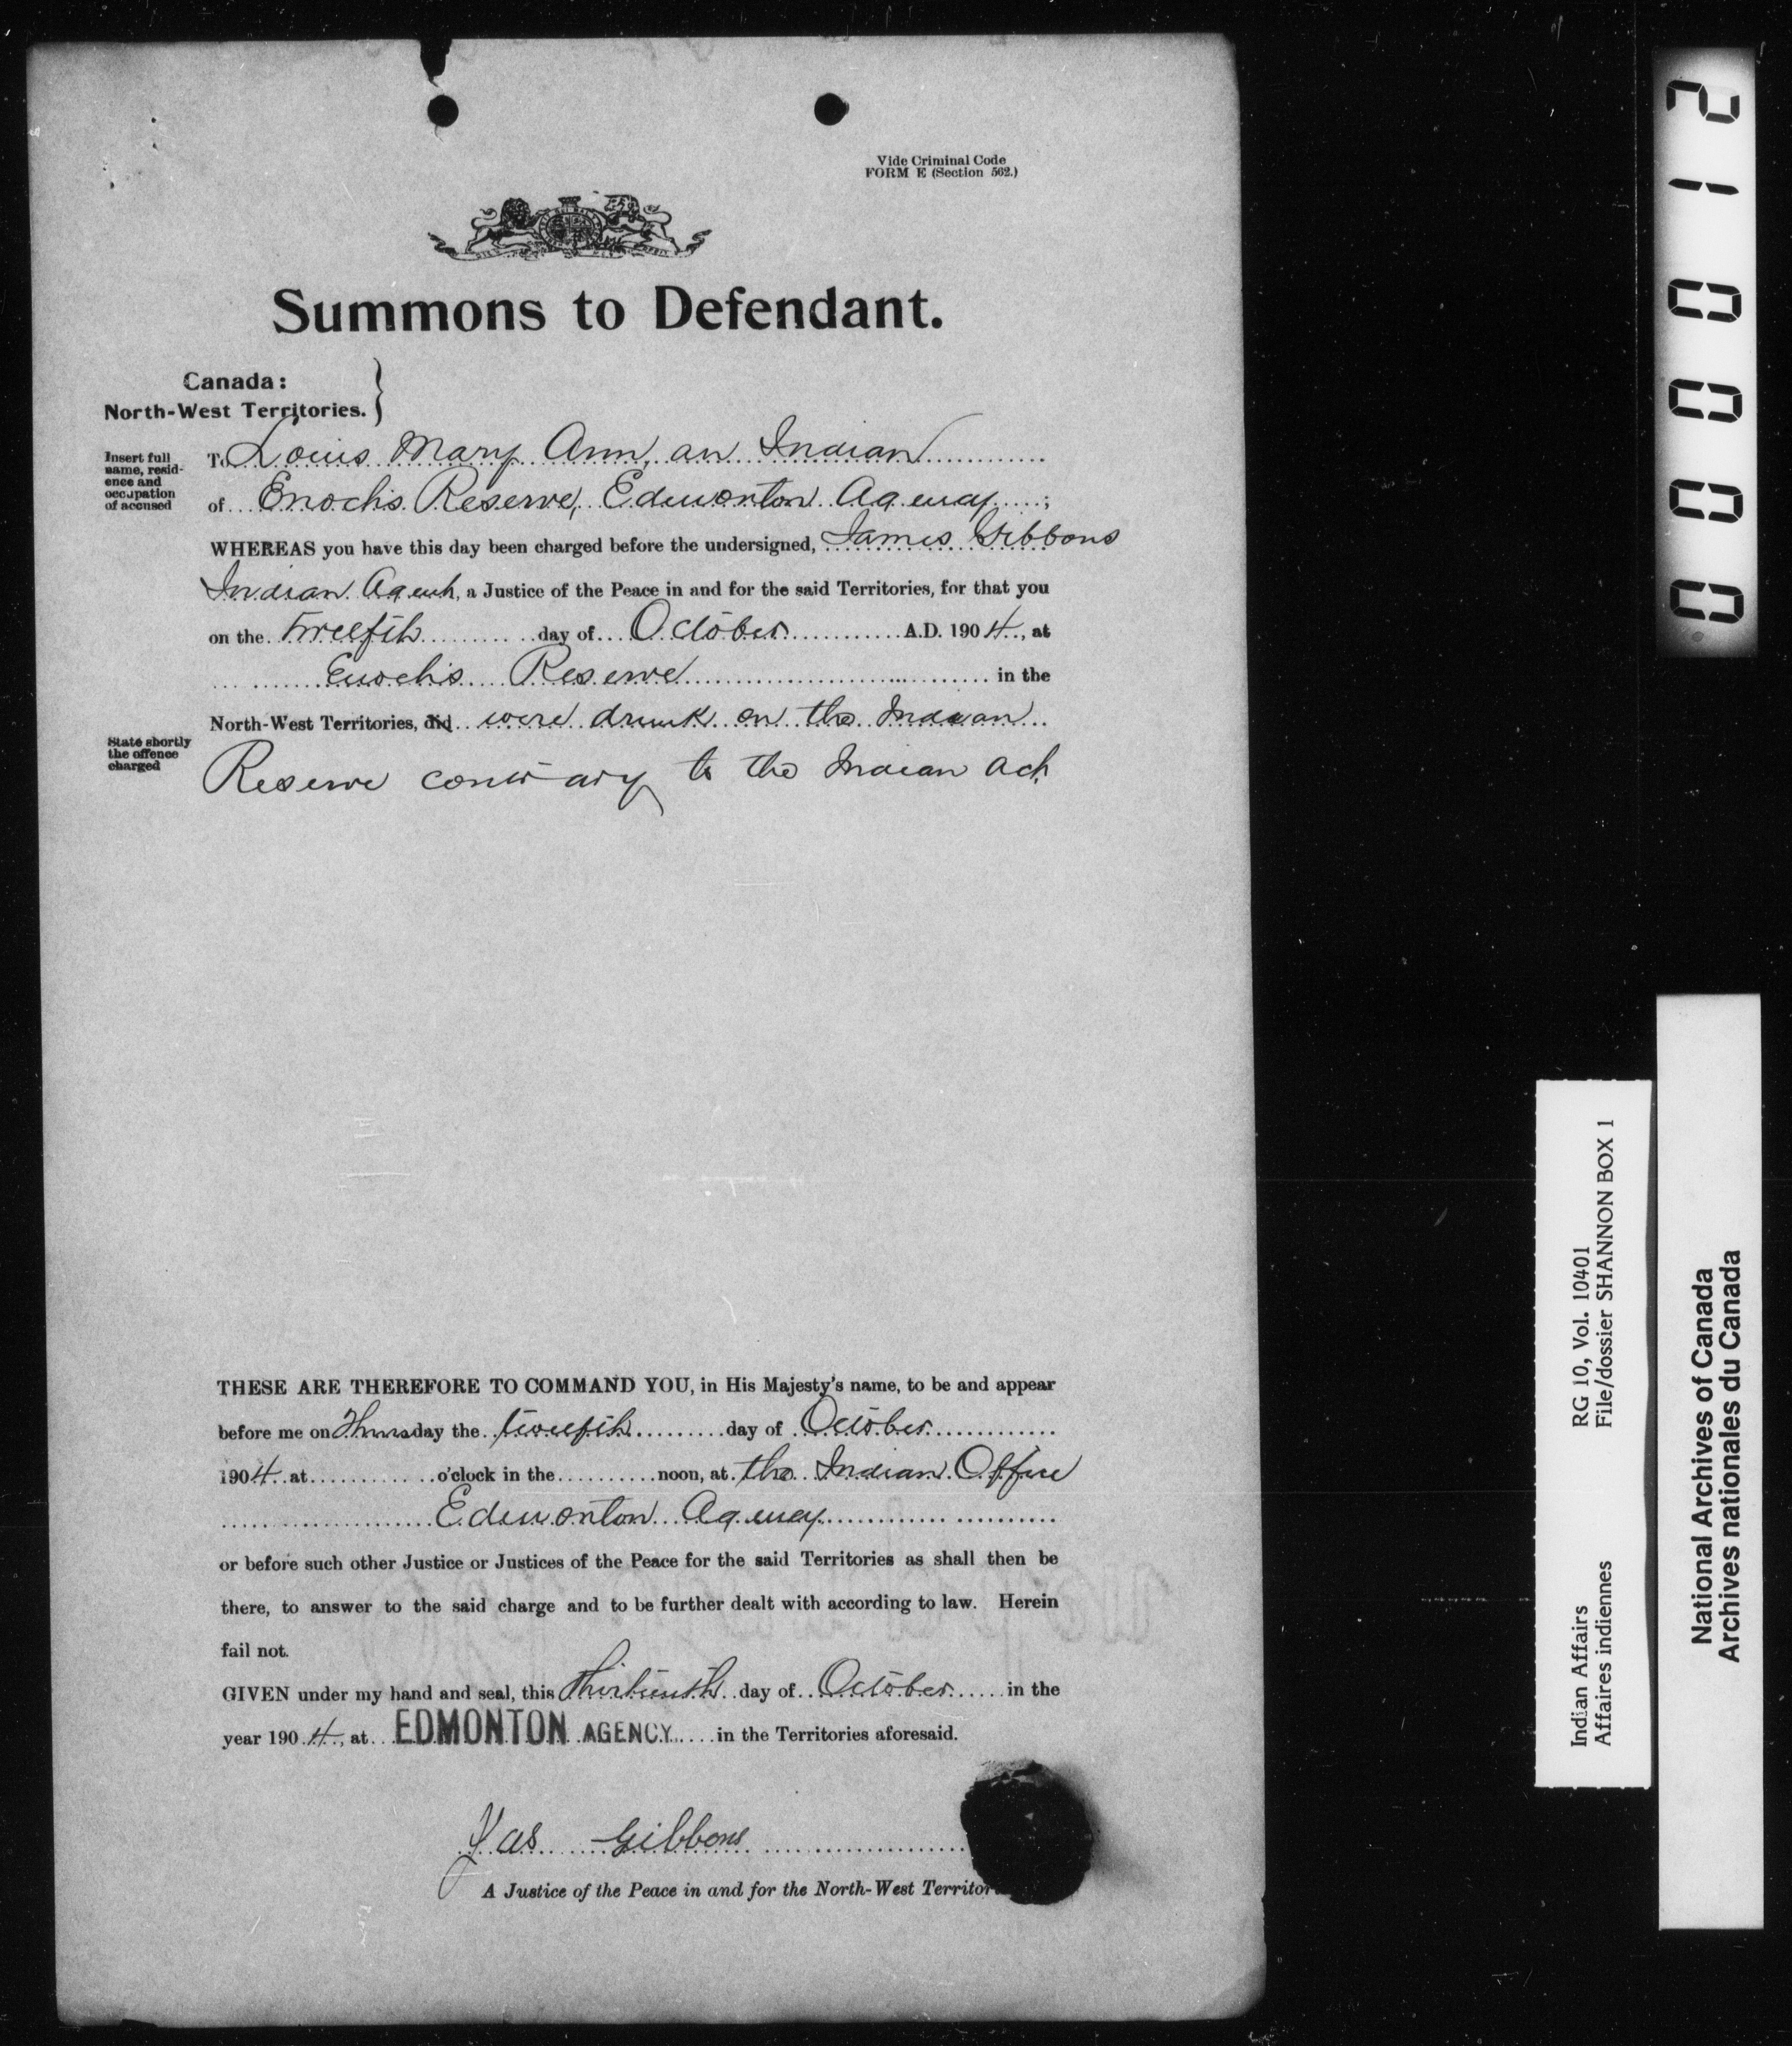 Vide Criminal Code
FORM E (Section 562.)
Summons to Defendant.
Canada:
North-West Territories.
Insert full
name, resid-
ence and
occupation
of accused
To Louis Mary Ann, an Indian
of Enoch's Reserve, Edmonton Agency ;
WHEREAS you have this day been charged before the undersigned, James Gibbons
Indian Agent, a Justice of the Peace in and for the said Territories, for that you
on the Twelfth day of October A.D. 1904, at
Enoch's Reserve in the
North-West Territories, did were drunk on the Indian
State shortly
the offence
charged
Reserve contrary to the Indian Act
THESE ARE THEREFORE TO COMMAND YOU, in His Majesty's name, to be and appear
before me on Thursday the twelfth day of October
1904 at o'clock in the noon, at the Indian Office
Edmonton Agency
or before such other Justice or Justices of the Peace for the said Territories as shall then be
there, to answer to the said charge and to be further dealt with according to law. Herein
fail not.
GIVEN under my hand and seal, this thirteenth day of October in the
year 1904, at EDMONTON AGENCY in the Territories aforesaid.
Jas Gibbons
A Justice of the Peace in and for the North-West Territor
000012
Indian Affairs RG 10, Vol. 10401
Affaires indiennes File/dossier SHANNON BOX 1
National Archives of Canada
Archives nationales du Canada